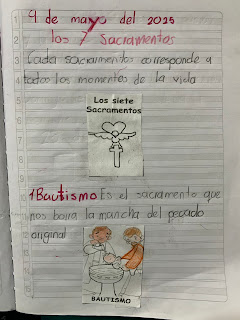 9 de mayo del 2025
los 7 Sacramentos
Cada sacramento corresponde a
todos los momentos de la vida
Los siete
Sacramentos
1 Bautismo Es el sacramento que
nos borra la mancha del pecado
original
BAUTISMO